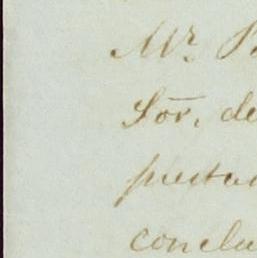 Mr. P
Sōr. de
presta
conclu